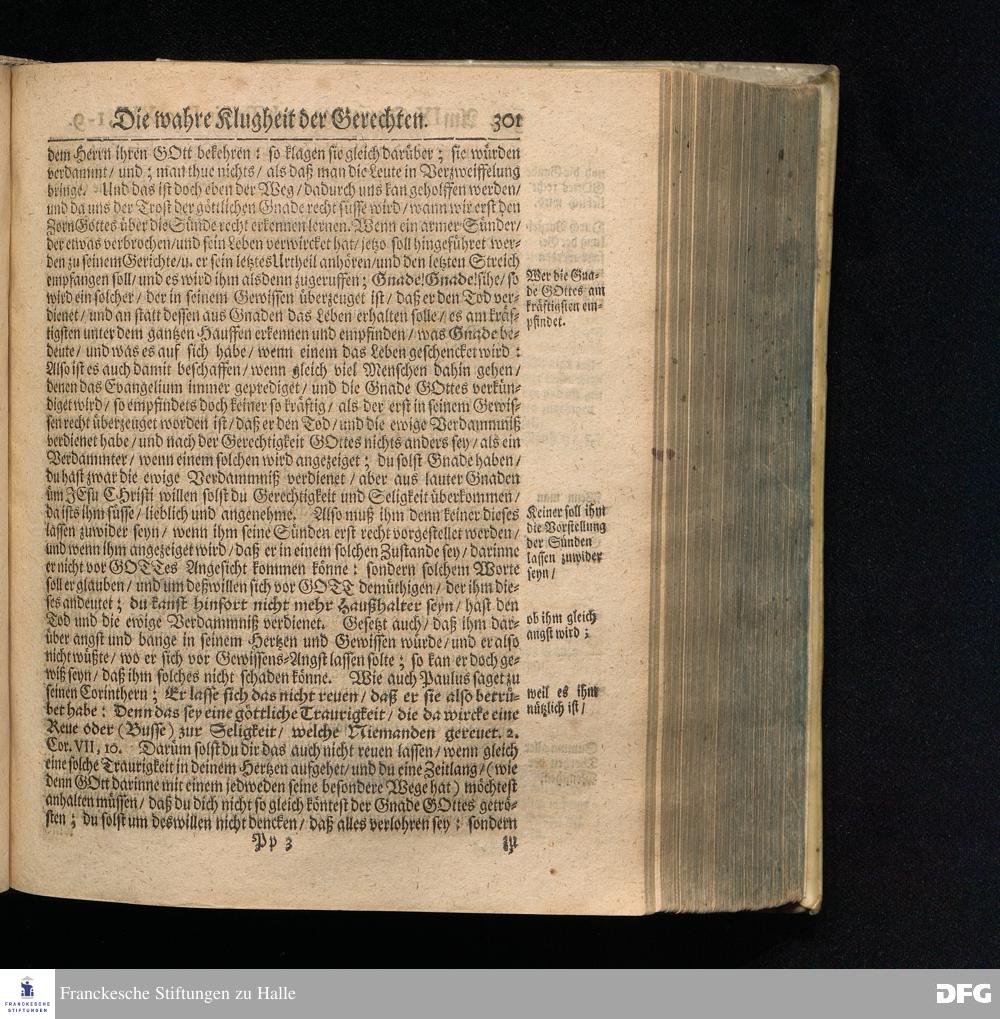 Die wahre Klugheit der Gerechten. 301
dem Herrn ihren GOtt bekehren: so klagen sie gleich darüber; sie würden
verdammt/ und; man thue nichts/ als daß man die Leute in Verzweiffelung
bringe. Und das ist doch eben der Weg/ dadurch uns kan geholffen werden/
und da uns der Trost der göttlichen Gnade recht süsse wird/ wann wir erst den
Zorn Gottes über die Sünde recht erkennen lernen. Wenn ein armer Sünder/
der etwas verbrochen/ und sein Leben verwircket hat/ jetzo soll hingeführet wer-
den zu seinem Gerichte/ u. er sein letztes Urtheil anhören/ und den letzten Streich
empfangen soll/ und es wird ihm alsdenn zugeruffen; Gnade! Gnade! sihe/ so
wird ein solcher/ der in seinem Gewissen überzeuget ist/ daß er den Tod ver-
dienet/ und an statt dessen aus Gnaden das Leben erhalten solle/ es am kräf-
tigsten unter dem gantzen Hauffen erkennen und empfinden/ was Gnade be-
deute/ und was es auf sich habe/ wenn einem das Leben geschencket wird:
Also ist es auch damit beschaffen/ wenn gleich viel Menschen dahin gehen/
denen das Evangelium immer geprediget/ und die Gnade GOttes verkün-
diget wird/ so empfindets doch keiner so kräftig/ als der erst in seinem Gewis-
sen recht überzeuget worden ist/ daß er den Tod/ und die ewige Verdammniß
verdienet habe/ und nach der Gerechtigkeit GOttes nichts anders sey/ als ein
Verdammter/ wenn einem solchen wird angezeiget; du solst Gnade haben/
du hast zwar die ewige Verdammniß verdienet/ aber aus lauter Gnaden
üm JEsu CHristi willen solst du Gerechtigkeit und Seligkeit überkommen/
da ists ihm süsse/ lieblich und angenehme. Also muß ihm denn keiner dieses
lassen zuwider seyn/ wenn ihm seine Sünden erst recht vorgestellet werden/
und wenn ihm angezeiget wird/ daß er in einem solchen Zustande sey/ darinne
er nicht vor GOTTes Angesicht kommen könne: sondern solchem Worte
soll er glauben/ und um deßwillen sich vor GOTT demüthigen/ der ihm die-
ses andeutet; du kanst hinfort nicht mehr Haußhalter seyn/ hast den
Tod und die ewige Verdammniß verdienet. Gesetzt auch/ daß ihm dar-
über angst und bange in seinem Hertzen und Gewissen würde/ und er also
nicht wüßte/ wo er sich vor Gewissens-Angst lassen solte; so kan er doch ge-
wiß seyn/ daß ihm solches nicht schaden könne. Wie auch Paulus saget zu
seinen Corinthern; Er lasse sich das nicht reuen/ daß er sie also betrü-
bet habe: Denn das sey eine göttliche Traurigkeit/ die da wircke eine
Reue oder (Busse) zur Seligkeit/ welche Niemanden gereuet. 2.
Cor. VII, 10. Darüm solst du dir das auch nicht reuen lassen/ wenn gleich
eine solche Traurigkeit in deinem Hertzen aufgehet/ und du eine Zeitlang/ (wie
denn GOtt darinne mit einem jedweden seine besondere Wege hat) möchtest
anhalten müssen/ daß du dich nicht so gleich köntest der Gnade GOttes getrö-
sten; du solst um deswillen nicht dencken/ daß alles verlohren sey: sondern
Pp 3 zu
Wer die Gna-
de GOttes am
kräftigsten em-
pfindet.
Keiner soll ihm
die Vorstellung
der Sünden
lassen zuwider
seyn/
ob ihm gleich
angst wird;
weil es ihm
nützlich ist/
FRANCKESCHE
STIFTUNGEN
Franckesche Stiftungen zu Halle
DFG